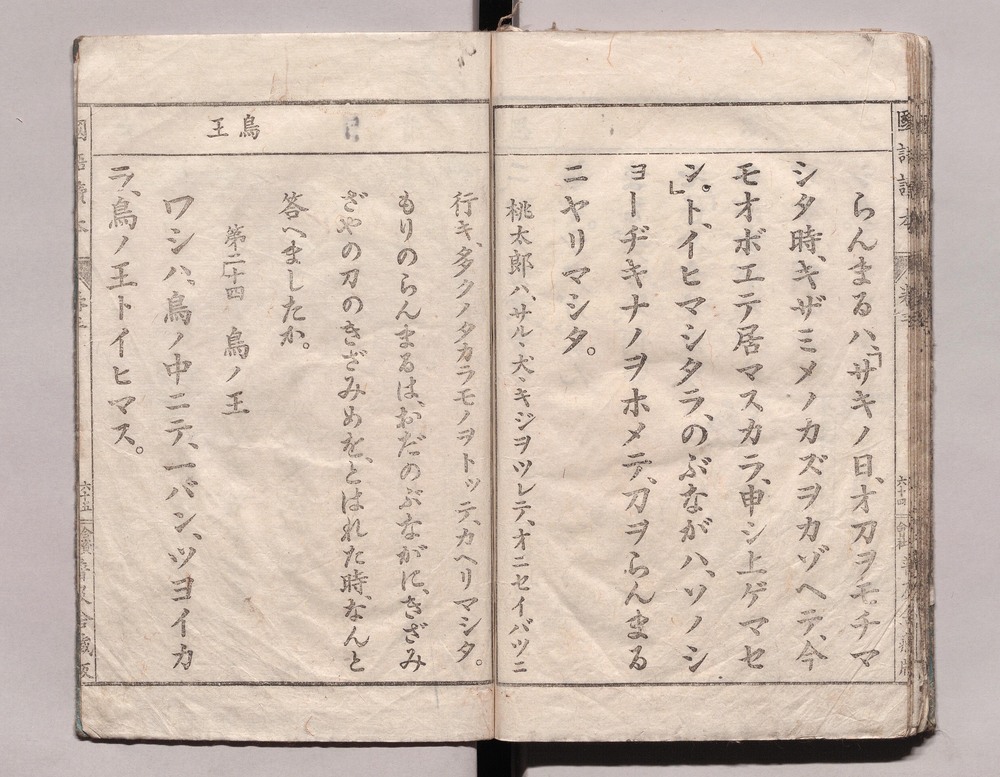 らんまるハ、「サキノ日、オ刀ヲモチマ
シタ時、キザミメノカズヲカゾヘテ、今
モオボエテ居マスカラ、申シ上ゲマセ
ン。」ト、イヒマシタラ、のぶながハ、ソノシ
ヨーヂキナノヲホメテ、刀ヲらんまる
ニヤリマシタ。
桃太郎ハ、サル、犬、キジヲツレテ、オニセイバツニ
行キ、多クノタカラモノヲトッテ、カヘリマシタ。
もりのらんまるは、おだのぶながに、きざみ
ざやの刀のきざみめを、とはれた時、なんと
答へましたか。
鳥王
第二十四 鳥ノ王
ワシハ、鳥ノ中ニテ、一バン、ツヨイカ
ラ、鳥ノ王トイヒマス。
國語讀本
卷三
六十四
六十五